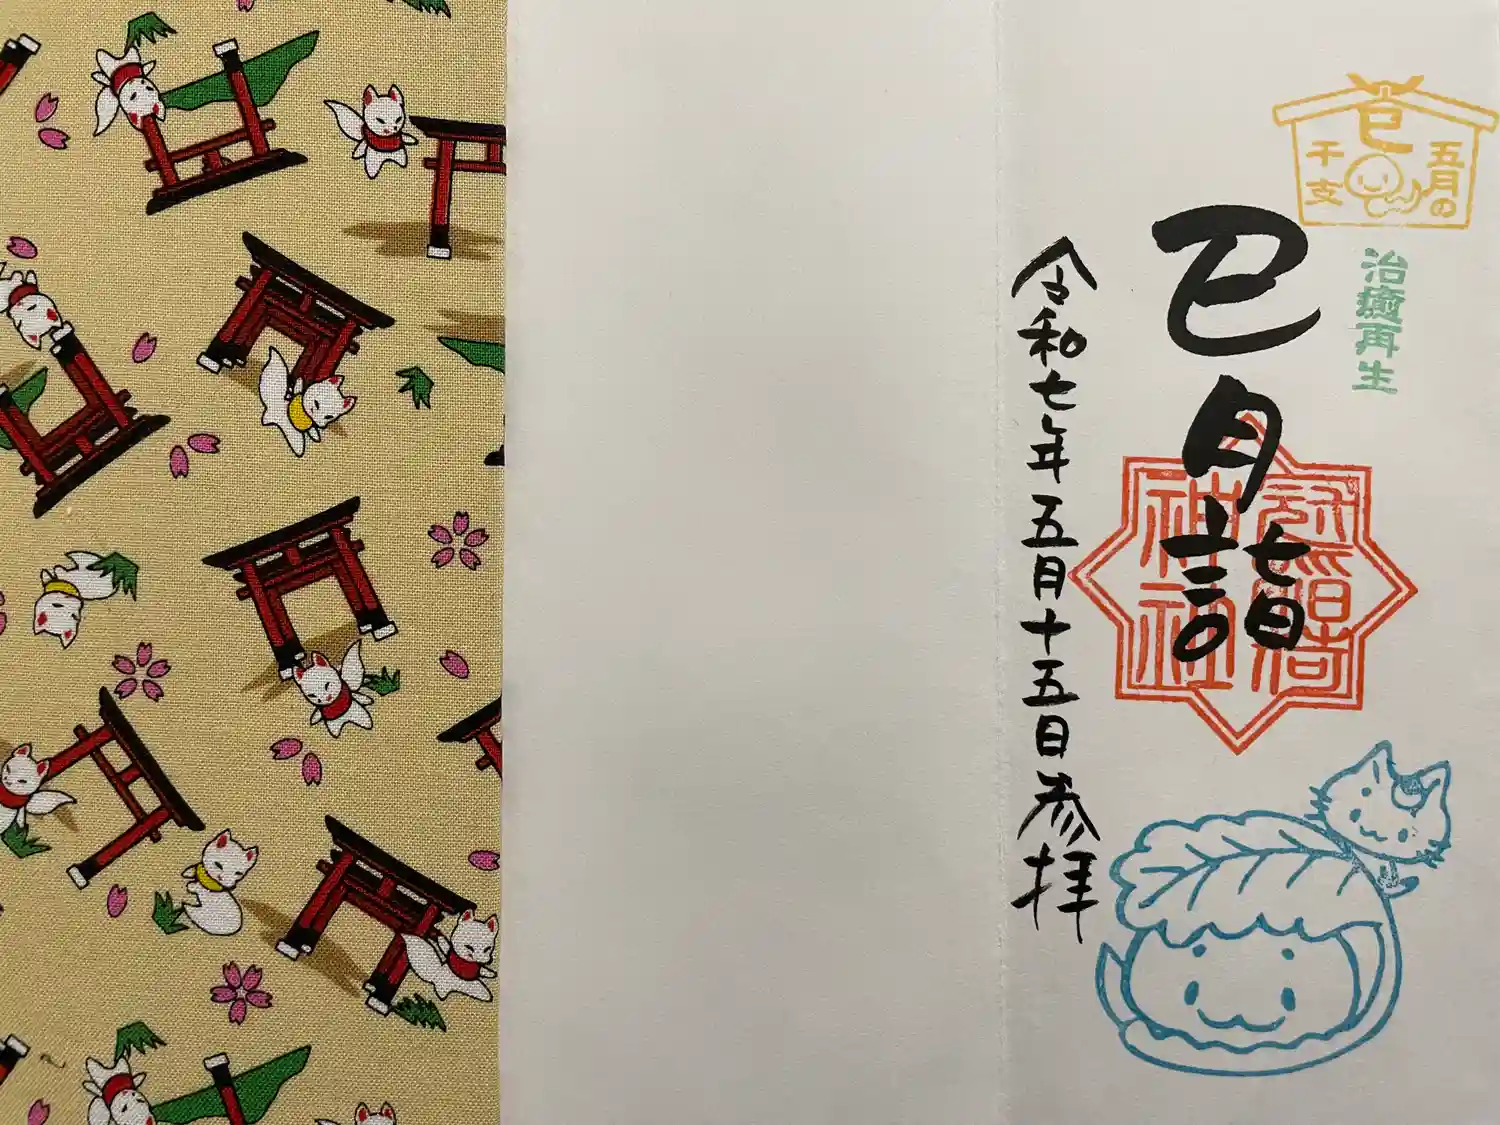 五月の
巳
干支
治癒再生
巳月詣
冠稲荷
神社
令和七年五月十五日参拝